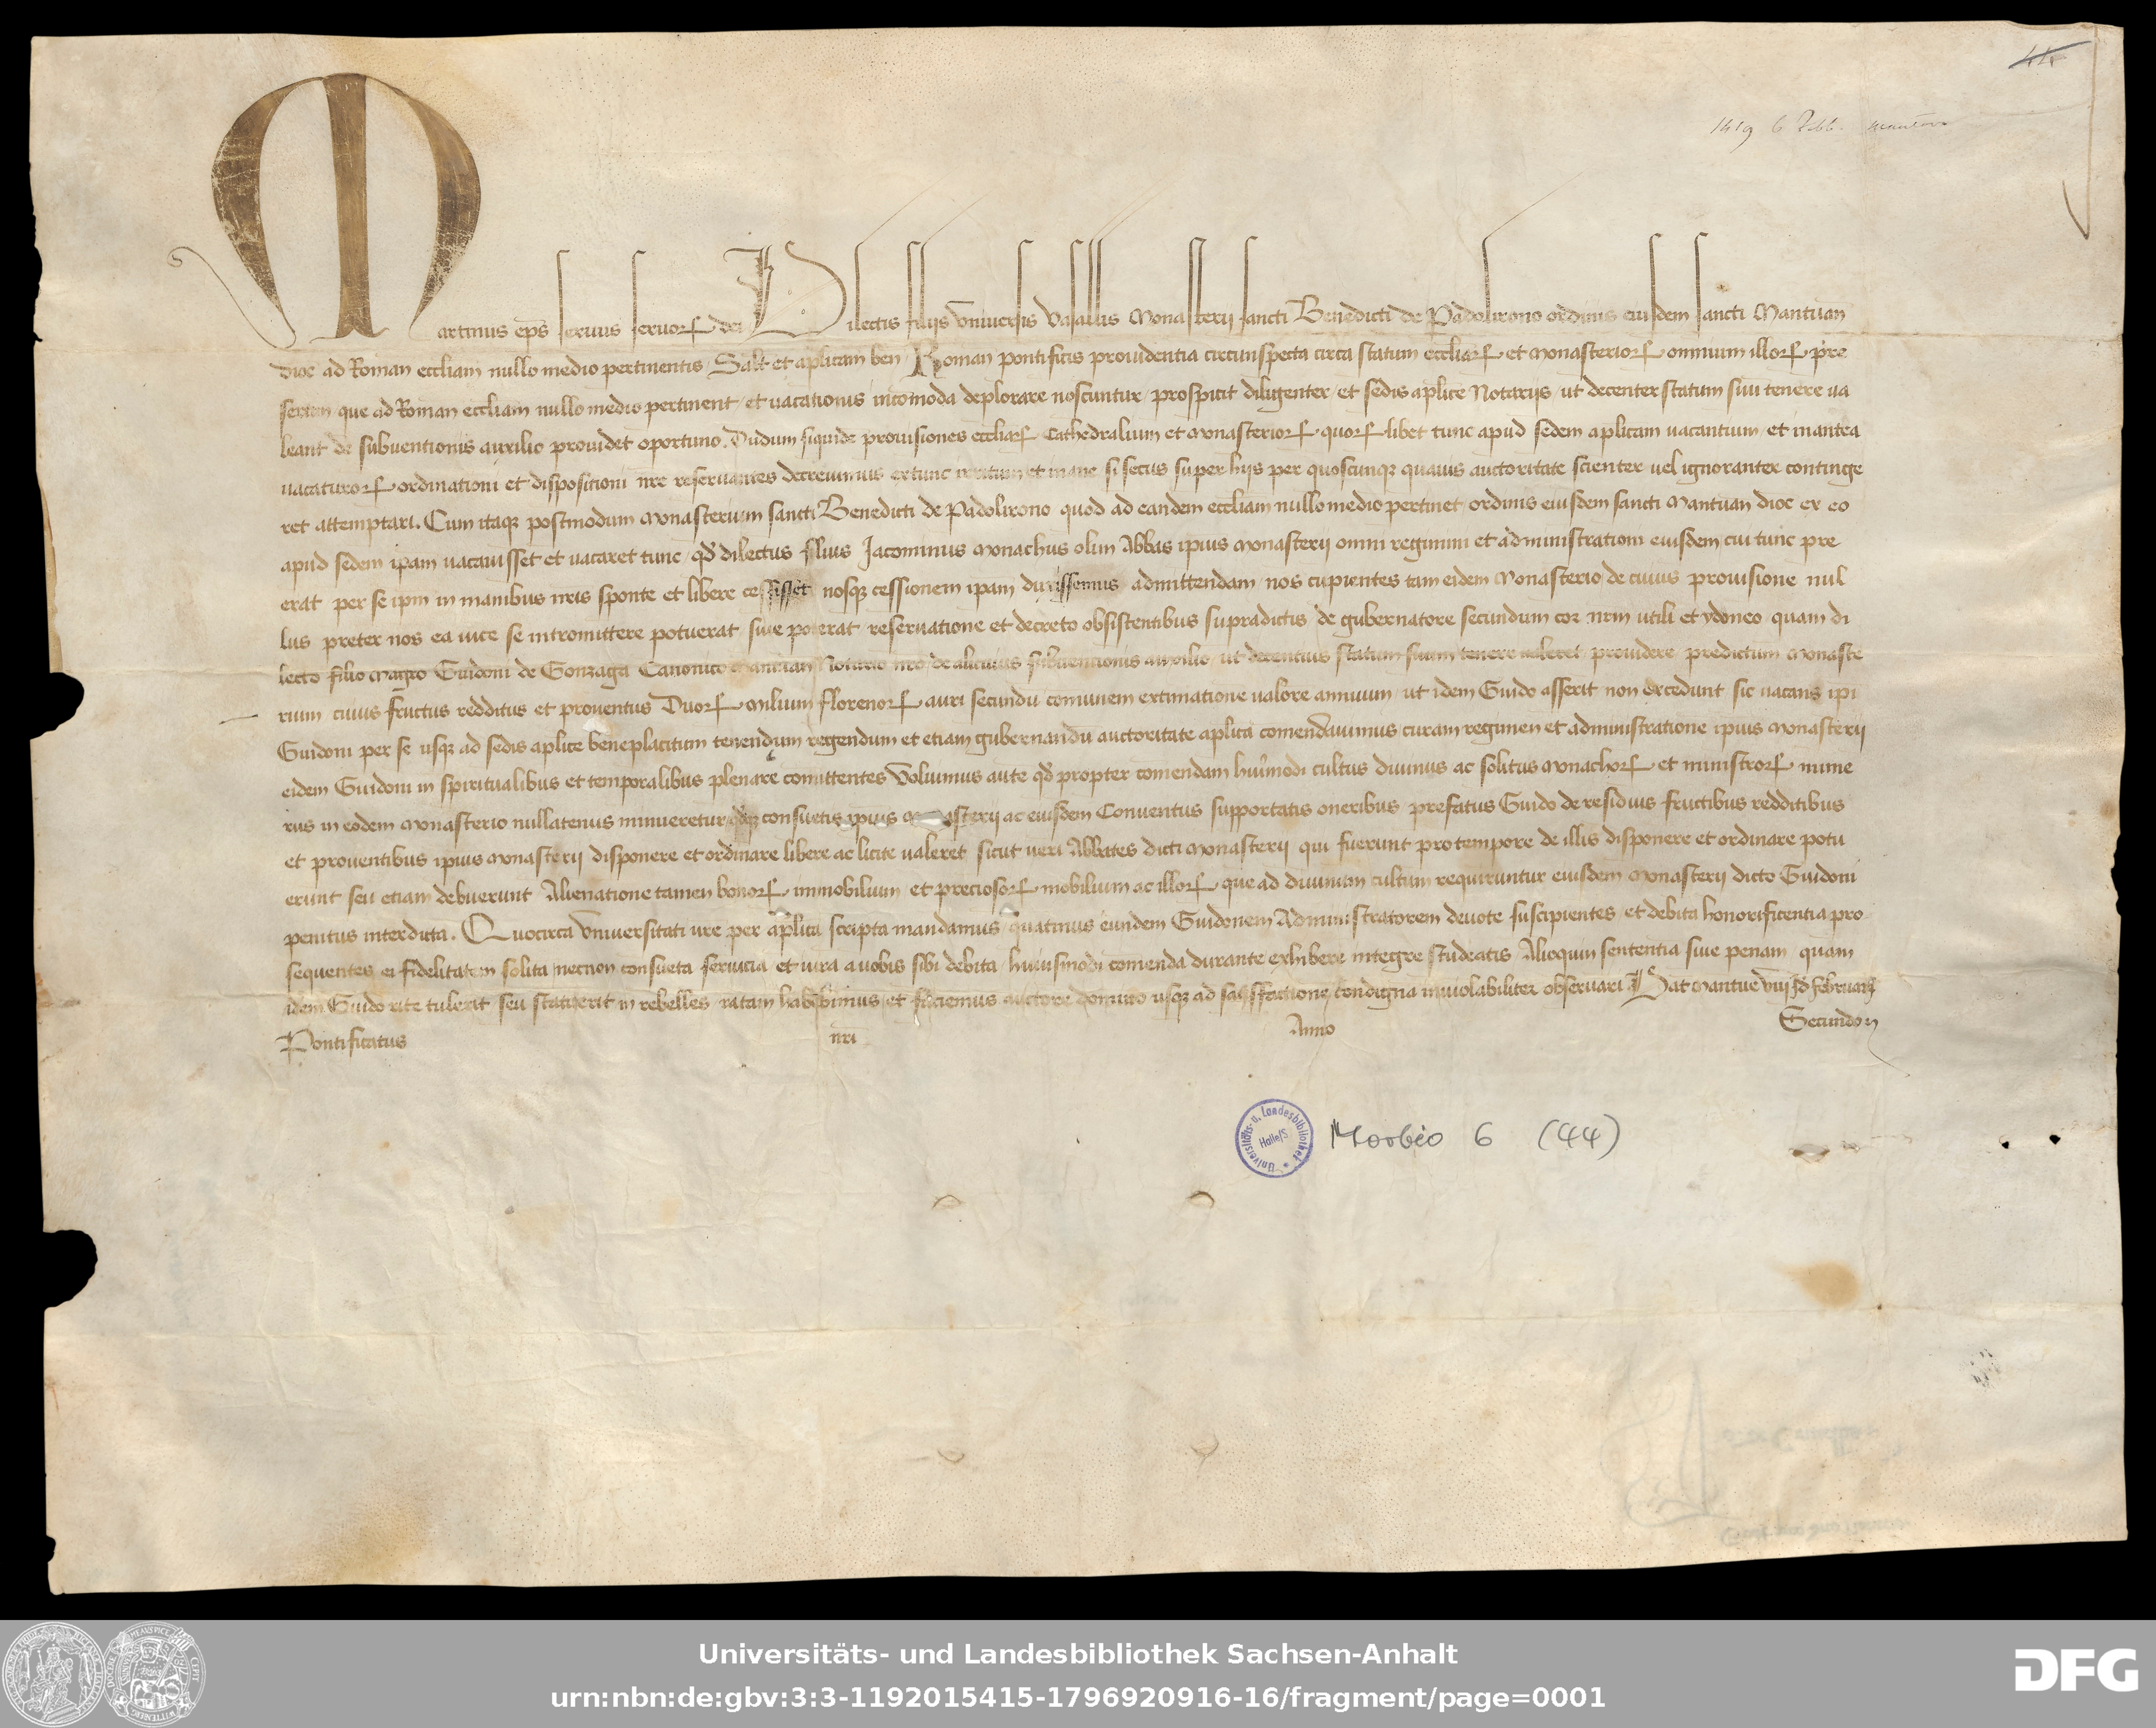 44
1419 6 Febb. Mantova
Martinus eps seruus seruorꝝ dei Dilectis filijs vniuersis Vasallis Monasterij sancti Benedicti de Padolirono ordinis eiusdem sancti Mantuan
dioc ad Roman eccliam nullo medio pertinentis Salt et aplicam ben Roman pontificis prouidentia circunspecta circa statum eccliarꝝ et monasteriorꝝ omnium illorꝝ pre
sertim que ad Roman eccliam nullo medio pertinent et uacationis incomoda deplorare noscuntur prospicit diligenter et sedis aplice Notarijs ut decenter statum suu tenere ua
leant de subuentionis auxilio prouidet oportuno. Dudum siquidem prouisiones eccliarꝝ Cathedralium et monasteriorꝝ quorꝝ libet tunc apud sedem aplicam uacantium et inantea
uacaturorꝝ ordinationi et dispositioni nre reseruantes decreuimus extunc irritum et inane si secus super hijs per quoscunqꝫ quauis auctoritate scienter uel ignoranter continge
ret attemptari. Cum itaqꝫ postmodum monasterium sancti Benedicti de Padolirono quod ad eandem eccliam nullo medio pertinet ordinis eiusdem sancti Mantuan dioc ex eo
apud sedem ipam uacauisset et uacaret tunc qd dilectus filius Jacominus monachus olim Abbas ipius monasterij omni regimini et administrationi eiusdem cui tunc pre
erat per se ipm in manibus nris sponte et libere cessisset nosqꝫ cessionem ipam duxissemus admittendam nos cupientes tam eidem Monasterio de cuius prouisione nul
lus preter nos ea uice se intromittere potuerat siue poterat reseruatione et decreto obsistentibus supradictis de gubernatore secundum cor nrm utili et ydoneo quam di
lecto filio magro Guidoni de Gonzaga Canonico Mantuan Notario nro de alicuius subuentionis auxilio ut decentius statum suum tenere ualeret prouidere predictum monaste
rium cuius fructus redditus et prouentus Duorꝝ milium florenorꝝ auri secundu comunem extimatione ualore annuum ut idem Guido asserit non excedunt sic uacans ipi
Guidoni per se usqꝫ ad sedis aplice beneplacitum tenendum regendum et etiam gubernandu auctoritate aplica comendauimus curam regimen et administratione ipius monasterij
eidem Guidoni in spiritualibus et temporalibus plenarie comittentes Voluimus aute qd propter comendam huiusmodi cultus diuinus ac solitus monachorꝝ et ministrorꝝ nume
rus in eodem monasterio nullatenus minueretur sedqꝫ consuetis ipius monasterij ac eiusdem Conuentus supportatis oneribus prefatus Guido de residuis fructibus redditibus
et prouentibus ipius monasterij disponere et ordinare libere ac licite ualeret sicut ueri Abbates dicti monasterij qui fuerunt pro tempore de illis disponere et ordinare potu
erunt seu etiam debuerunt Alienatione tamen bonorꝝ immobilium et preciosorꝝ mobilium ac illorꝝ que ad diuinum cultum requiruntur eiusdem monasterij dicto Guidoni
penitus interdicta. Quocirca vniuersitati vre per aplica scripta mandamus quatinus eundem Guidonem Administratorem deuote suscipientes et debita honorificentia pro
sequentes ei fidelitatem solita necnon consueta seruicia et iura a uobis sibi debita huiusmodi comenda durante exhibere integre studeatis Alioquin sententia siue penam quam
idem Guido rite tulerit seu statuerit in rebelles ratam habebimus et faciemus auctore domino usqꝫ ad satisfactione condigna inuiolabiliter obseruari Dat Mantue viij Id februarij
Pontificatus nri Anno Secundo
Universitäts- u. Landesbibliothek Halle/S
Morbio 6 (44)
Universitäts- und Landesbibliothek Sachsen-Anhalt
urn:nbn:de:gbv:3:3-1192015415-1796920916-16/fragment/page=0001
DFG